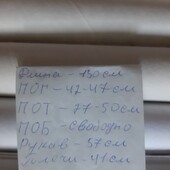 Длина - 130 см
ПОГ - 42-47 см
ПОТ - 77-50 см
ПОБ - свободно
Рукав - 57 см
Плечи - 41 см